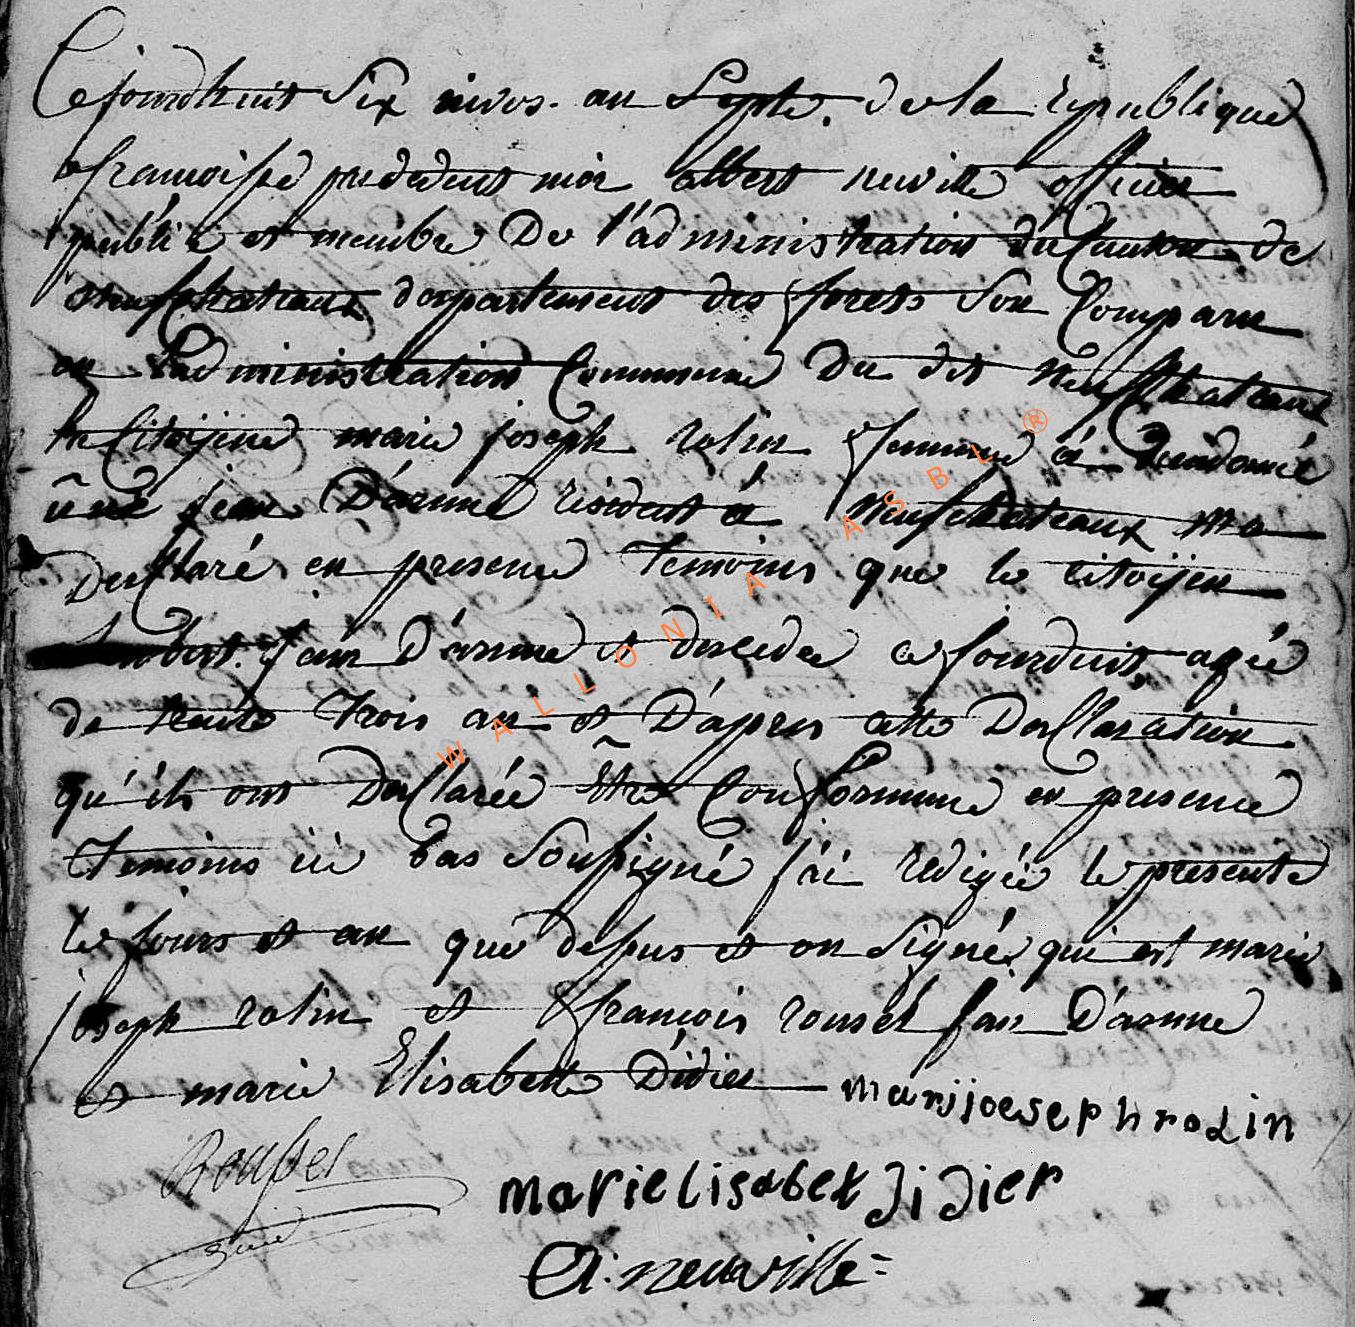 Cejourdhuit Six nivos. an Septe. de la republique
francoise pardedent moi albert neuville officier
publik et membre De l'administration du Canton de
neufchateaux departement des forets Son Comparu
en l'administration Commune Du dit Neufchateaux
la Citoijene marie joseph rolin femme à
jean D'arenne risidant à Neufchateaux ma
Desclaré en presence Temoins que le citoijen
jean D'arenne et descedee cejourduit, agée
de trente Trois an et D'apres cette Desclaration
qu'éls ont Desclarée Etre Conformme en presence
Temoins ici bas Soussigné j'ai redigée le presente
le jours et an que dessus et on Signé, qui est marie
joseph rolin et francois rousel D'arenne
et marie Elisabette Didier
marijjoesephrolin
Rousser
marielisabet didier
A. neuville
WALLONIA ASBL ®